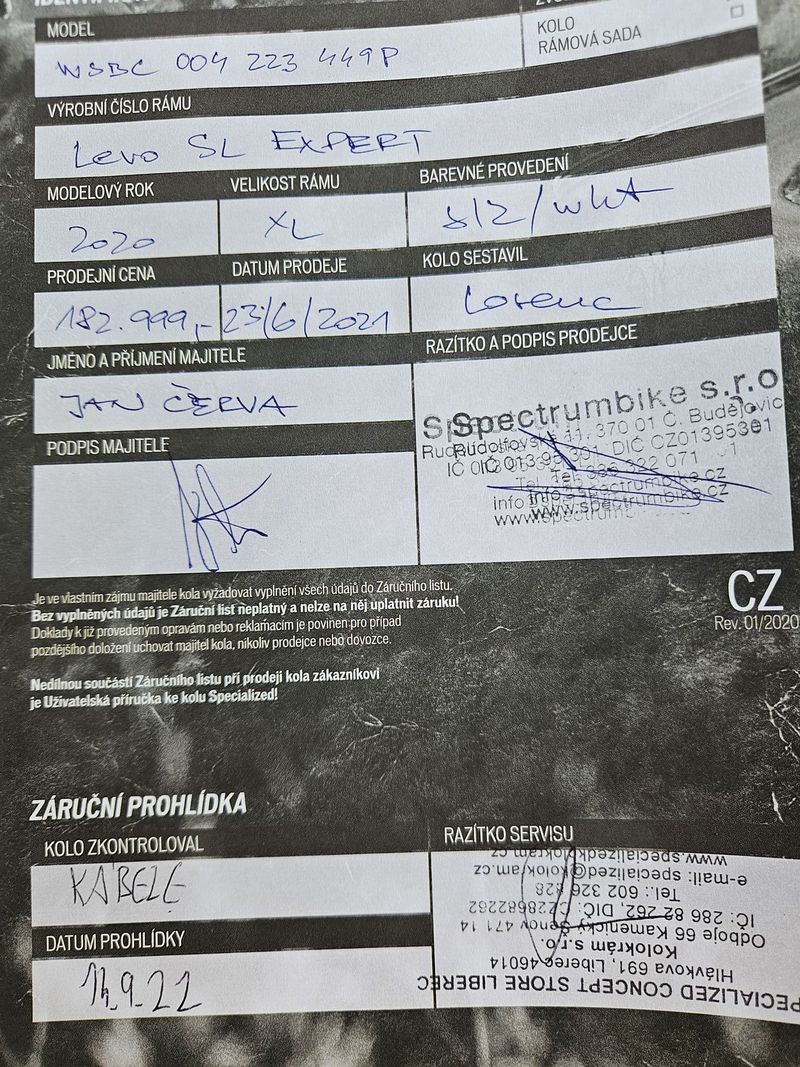 MODEL
WSBC 004 223 449P
KOLO
RÁMOVÁ SADA
VÝROBNÍ ČÍSLO RÁMU
Levo SL EXPERT
MODELOVÝ ROK
VELIKOST RÁMU
BAREVNÉ PROVEDENÍ
2020
XL
PRODEJNÍ CENA
DATUM PRODEJE
KOLO SESTAVIL
182.999,-
23/6/2021
Lorenc
JMÉNO A PŘÍJMENÍ MAJITELE
RAZÍTKO A PODPIS PRODEJCE
JAN ČERVA
Spectrumbike s.r.o
Rudolfovská 11, 370 01 Č. Budějovic
IČ 01395301, DIČ CZ01395301
www.spectrumbike.cz
PODPIS MAJITELE
Je ve vlastním zájmu majitele kola vyžadovat vyplnění všech údajů do Záručního listu.
Bez vyplněných údajů je Záruční list neplatný a nelze na něj uplatnit záruku!
Doklady k již provedeným opravám nebo reklamacím je povinen pro případ
pozdějšího doložení uchovat majitel kola, nikoliv prodejce nebo dovozce.
CZ
Rev. 01/2020
Nedílnou součástí Záručního listu při prodeji kola zákazníkovi
je Uživatelská příručka ke kolu Specialized!
ZÁRUČNÍ PROHLÍDKA
KOLO ZKONTROLOVAL
RAZÍTKO SERVISU
KABELE
DATUM PROHLÍDKY
14.9.22
PECIALIZED CONCEPT STORE LIBEREC
Hlávkova 691, Liberec 46014
Kolokrám s.r.o.
Odboje 66 Kamenický Šenov 471 14
IČ: 286 82 262, DIČ: CZ28682262
Tel.: 602 326 828
e-mail: specialized@kolokram.cz
www.specializedkolokram.cz